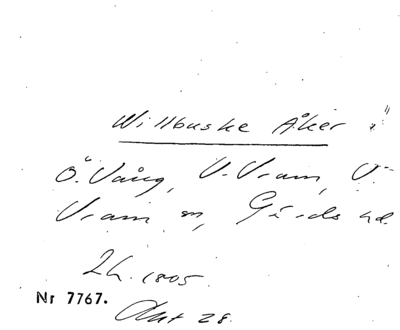 Willbuske Åker "
Ö. Vång, V. Vram, V.
Vram sn, Gärds hd
Lh. 1805
Nr 7767.
Akt 28.